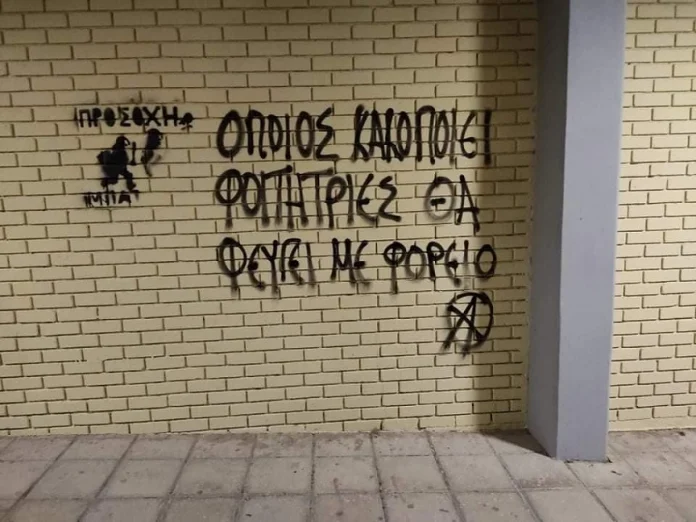 ΠΡΟΣΟΧΗ
ΟΠΟΙΟΣ ΚΑΚΟΠΟΙΕΙ
ΦΟΙΤΗΤΡΙΕΣ ΘΑ
ΦΕΥΓΕΙ ΜΕ ΦΟΡΕΙΟ